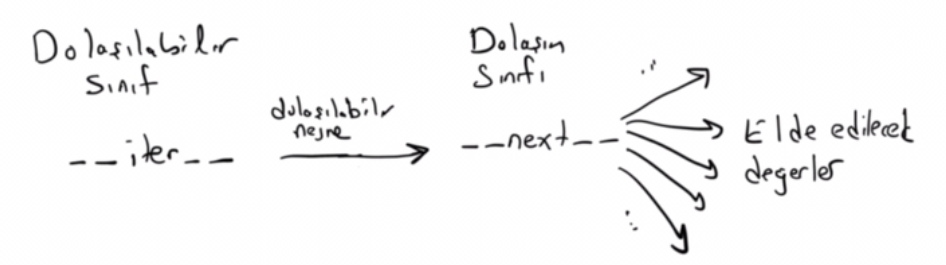 Dolaşılabilir
Sınıf
__iter__
dolaşılabilir
nesne
Dolaşım
Sınıfı
__next__
Elde edilecek
değerler